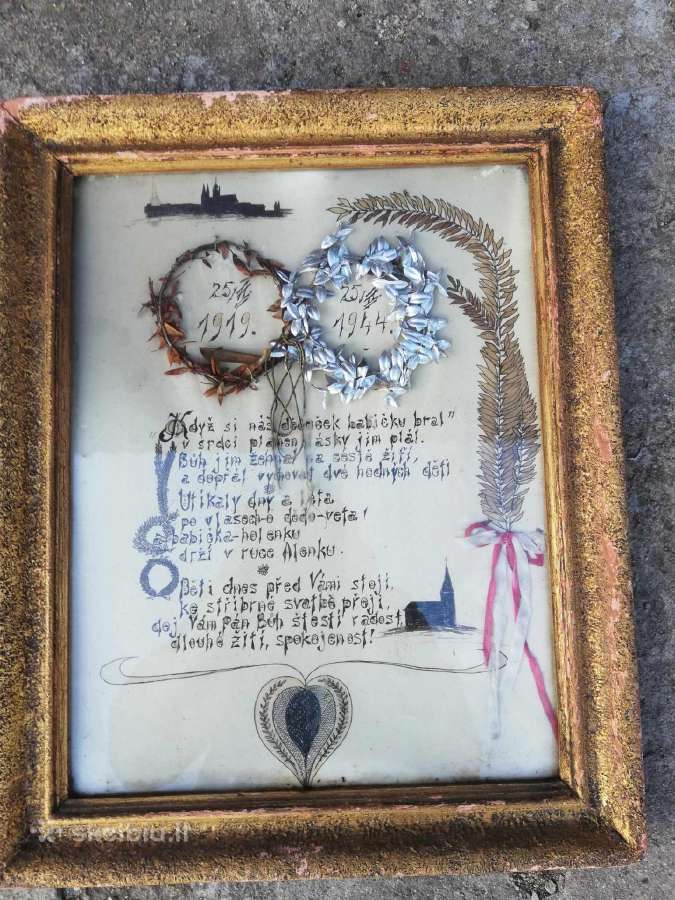 1919.
1944.
"Když si náš dědeček babičku bral"
v srdci plamen lásky jim plál.
Bůh jim žehnal na cestě žití,
a dopřál vychovat dvě hodných dětí
Utíkaly dny a léta
po vlasech
a babička
drží v ruce Alenku.
Děti dnes před Vámi stojí,
ke stříbrné svatbě přejí,
dej Vám Pán Bůh štěstí radost,
dlouhé žití, spokojenost!
skelbiu.lt